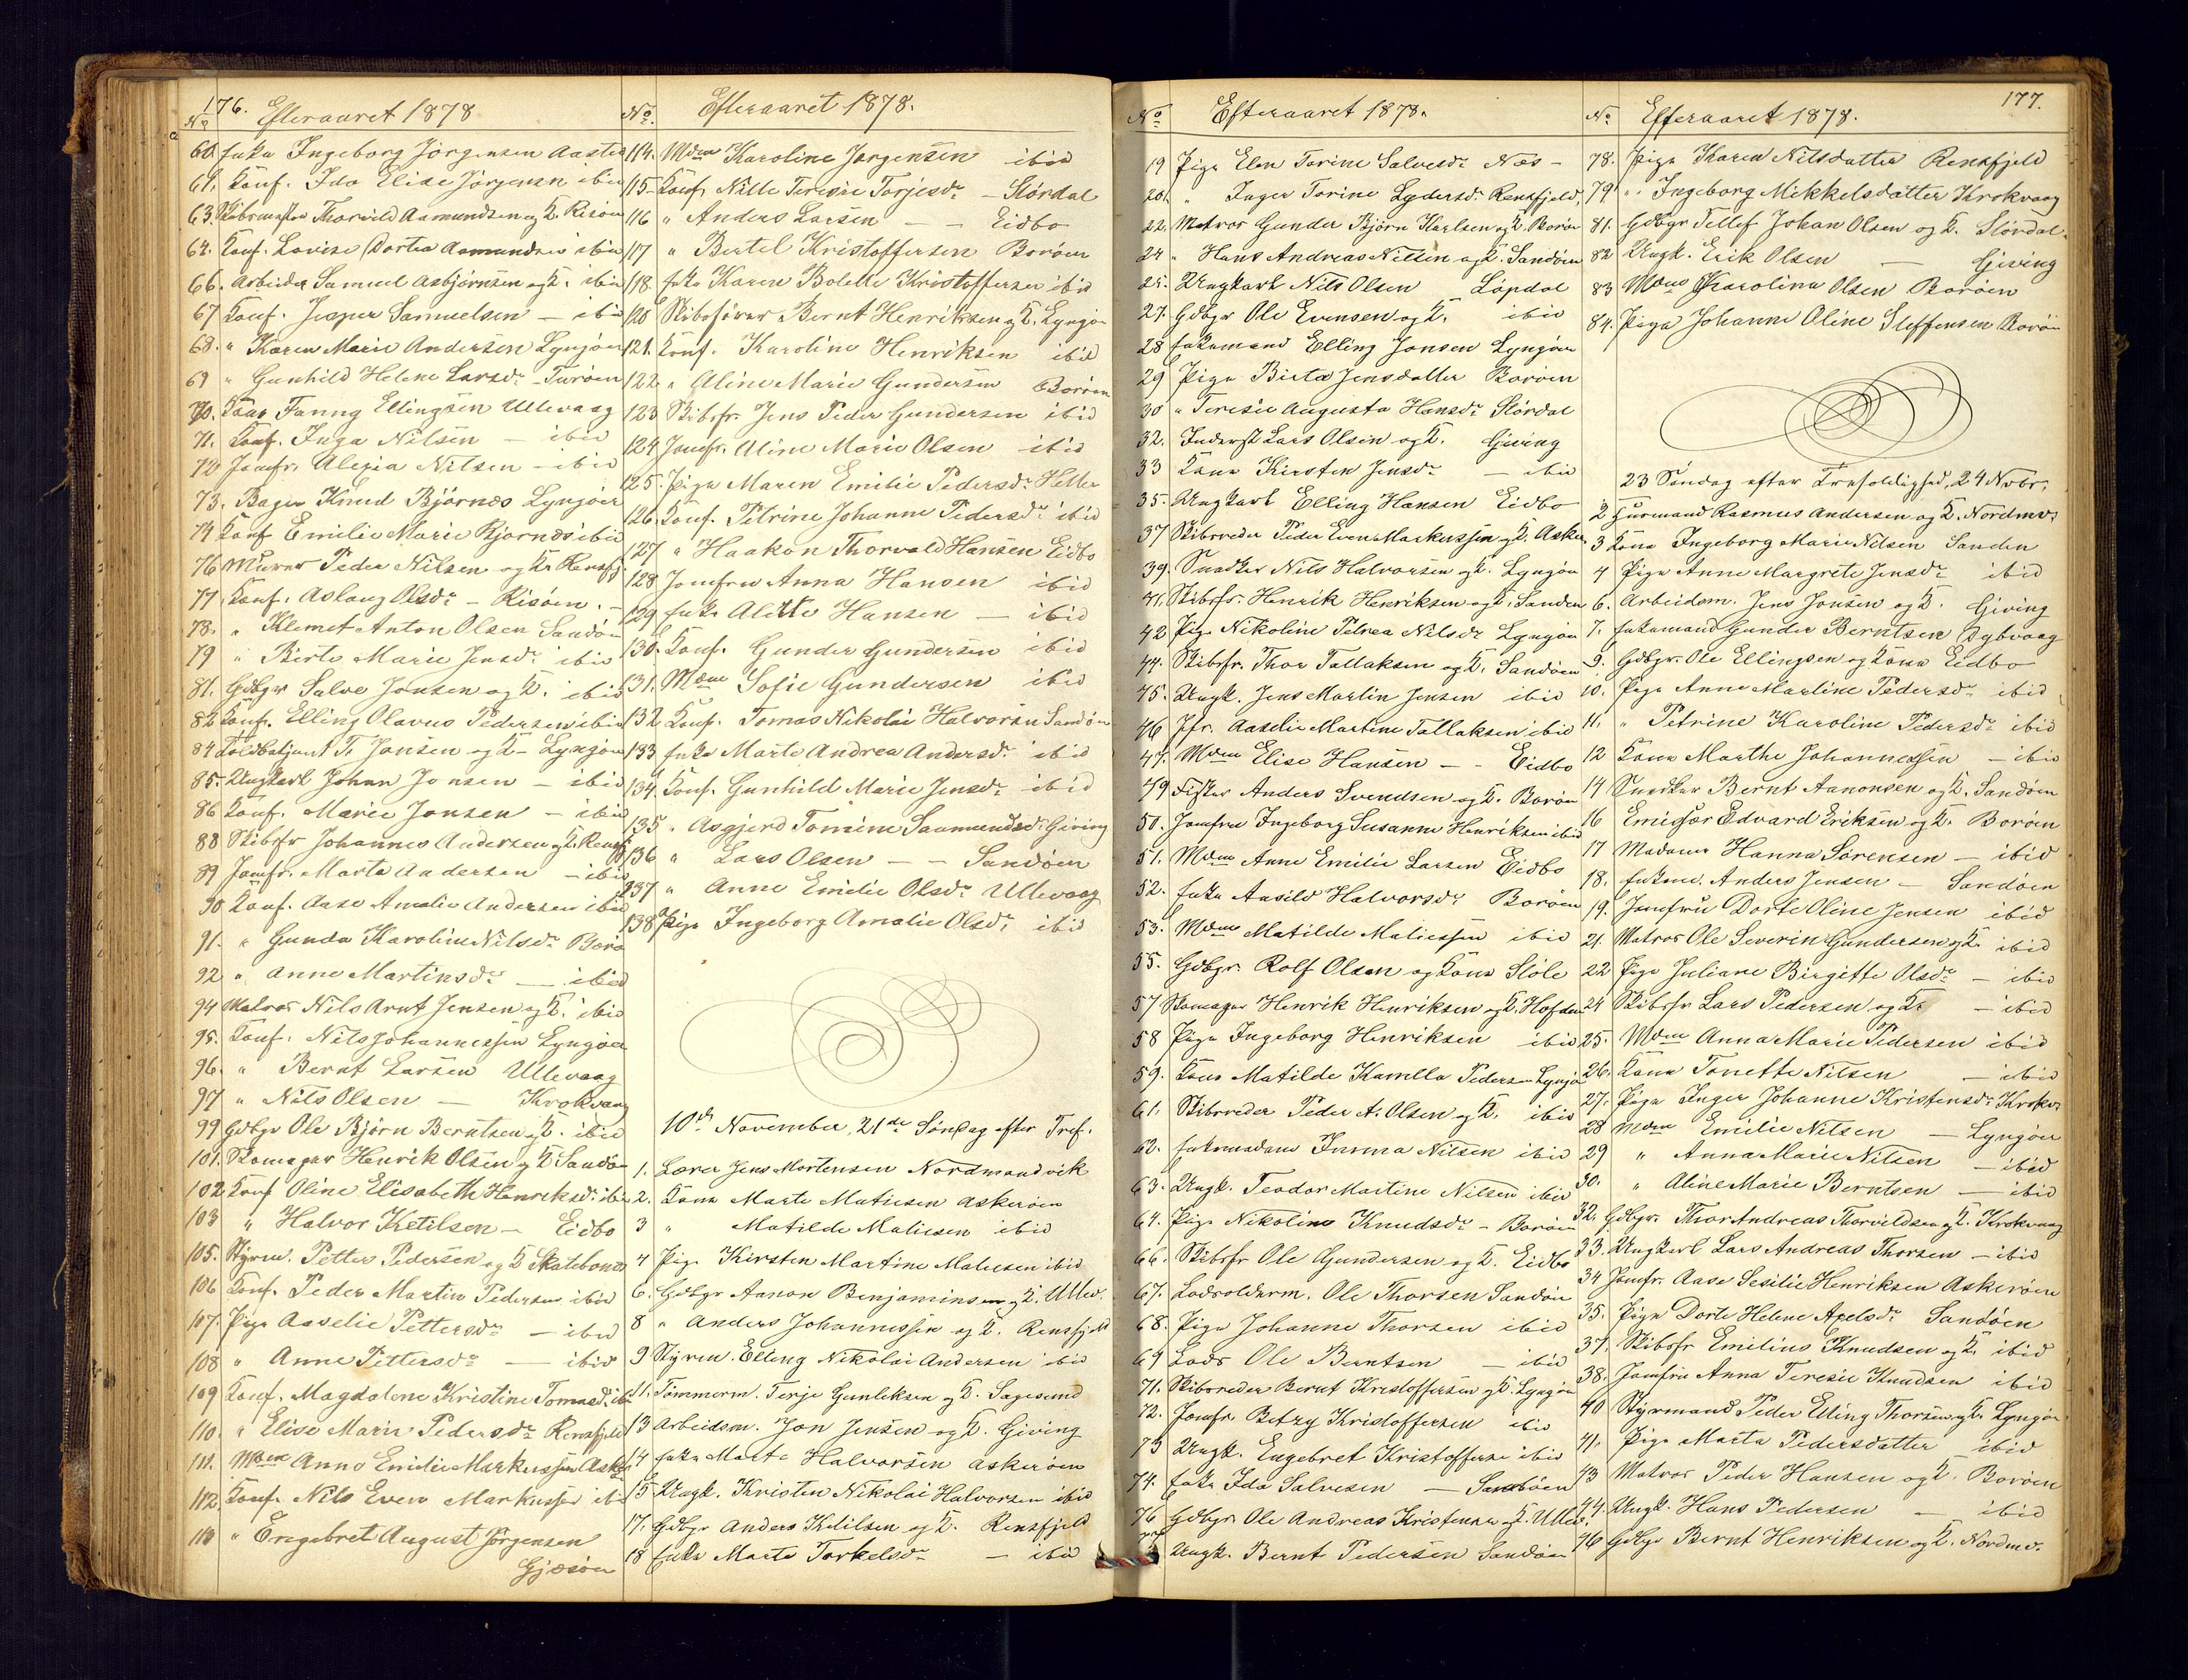 176.
No Efteraaret 1878
60 Enke Ingeborg Jørgensen Aasted
61. Konf. Ida Elise Jørgensen ibid
63. Skibsmester Thorvald Aamundsen og K. Risøen
64. Konf. Lovise Dortea Aamundsen ibid
66. Arbeider Samuel Asbjørnsen og K. ibid
67 Konf. Jesper Samuelsen — ibid
68. " Karen Marie Andersen Lyngøer
69 " Gunhild Helene Larsdr - Furøen
70. Kone Fanny Ellingsen Ullevaag
71. Konf. Inga Nilsen — ibid
72 Jomfr. Alexia Nilsen — ibid
73. Bager Knud Bjørnæs Lyngøer
74 Konf Emilie Marie Bjørnæs ibid
76 Murer Peder Nilsen og K. Rensfj.
77 Konf. Aslaug Olsdr - Risøen. -
78. " Klemet Anton Olsen Sandøen
79 " Birte Marie Jensdr ibid
81. Gdbgr Salve Jonsen og K. ibid
82 Konf. Elling Olavus Pedersen ibid
84 Toldbetjent T. Jansen og K - Lyngøer
85. Ungkarl Johan Jonsen — ibid
86 Konf. Marie Jansen — ibid
88 Skibsfr Johannes Andersen og K. Rensfj
89 Jomfr. Marta Andersen — ibid
90 Konf. Aase Amalie Andersen ibid
91. " Gunda Karoline Nilsdr Borø
92 " Anne Martinsdr — ibid
94 Matros Nils Arnt Jensen og K. ibid
95. Konf. Nils Johannessen Lyngøer
96. " Bernt Larsen Ullevaag
97 " Nils Olsen — Krokvaag
99 Gdbgr Ole Bjørn Berntsen og K. ibid
101. Skomager Henrik Olsen og K Sandøen
102 Konf Oline Elisabeth Henriksdr ibid
103 " Halvor Ketilsen — Eidbo
105. Styrm. Petter Pedersen og K
106 Konf. Peder Martin Pedersen ibid
107. Pige Aaselie Pettersdr — ibid
108 " Anne Pettersdr — ibid
109 Konf. Magdalene Kristine Tomasdr. ibid
110. " Elise Marie Pedersdr Rensfjeld
111. Mdme Anne Emilie Markussen Askerø
112 Konf. Nils Even Markussen ibid
113 " Engebret August Jørgensen
Gjæsøen
No. Efteraaret 1878.
114. Mdme Karoline Jørgensen ibid
115 Konf. Nille Teresie Torjesdr - Størdal
116 " Anders Larsen — — Eidbo
117 " Bertel Kristoffersen Borøen
118. Enke Karen Bolette Kristoffersen ibid
120 Skibsfører Bernt Henriksen og K. Lyngør
121. Konf. Karoline Henriksen ibid
122. " Aline Marie Gundersen Borøen
123 Skibsfr. Jens Peder Gundersen ibid
124 Jomfr. Aline Marie Olsen ibid
125. Pige Maren Emilie Pedersdr Helle
126. Konf. Petrine Johanne Pedersdr ibid
127 " Haakon Thorvald Hansen Eidbo
128 Jomfru Anna Hansen ibid
129 Enke Alette Hansen — ibid
130. Konf. Gunder Gundersen ibid
131. Mdme Sofie Gundersen ibid
132 Konf. Tomas Nikolai Halvorsen Sandøen
133 Enke Marte Andrea Andersdr ibid
134. Konf. Gunhild Marie Jensdr ibid
135 " Asgjerd Tomine Saamundsdr. Giving
136 " Lars Olsen — — Sandøen
137 " Anne Emilie Olsdr Ullevaag
138 Pige Ingeborg Amalie Olsdr. ibid
10de November, 21de Søndag efter Tref.
1. Lærer Jens Mortensen Nordmandvik
2. Kone Marte Matiesen Askerøen
3 " Matilde Matiesen ibid
4 Pige Kirsten Martine Matiesen ibid
6. Gdbgr Aanon Benjaminsen og K. Ullev.
8 " Anders Johannessen og K. Rensfjeld
9 Styrm. Elling Nikolai Andersen ibid
11. Tømmerm. Terje Gunleksen og K. Sagesund
13 Arbeidsm. Jon Jensen og K. Giving
14 Enke Marte Halvorsen Askerøen
15 Ungk. Kristen Nikolai Halvorsen ibid
17. Gdbgr Anders Ketilsen og K. Rensfjeld
18 Enke Marte Torkelsdr — ibid
No Efteraaret 1878.
19 Pige Elen Torine Salvesdr Næs -
20. " Inger Torine Lydersdr Rensfjeld
22. Matros Gunder Bjørn Karlsen og K. Borøen
24 " Hans Andreas Nilsen og K. Sandøen
25. Ungkarl Nils Olsen Løpdal
27. Gdbgr Ole Evensen og K. ibid
28 Enkemand Elling Jonsen Lyngøer
29 Pige Birta Jensdatter Borøen
30 " Teresie Augusta Hansdr Stördal
32. Inderst Lars Olsen og K. Giving
33 Kone Kirsten Jensdr — ibid
35. Ungkarl Elling Hansen Eidbo
37 Skibsreder Peder Even Markussen og K. Asker
39. Snedker Nils Halvorsen og K. Lyngøer
41. Skibsfr. Henrik Henriksen og K. Sanden
42 Pige Nikoline Petrea Nilsdr Lyngøer
44. Skibsfr. Thor Tallaksen og K. Sandøen
45. Ungk. Jens Martin Jensen ibid
46 Jfr. Aaselie Martine Tallaksen ibid
47. Mdme Elise Hansen — - Eidbo
49 Fisker Anders Svendsen og K. Borøen
50. Jomfru Ingeborg Susanne Henriksen ibid
51. Mdme Anne Emilie Larsen Eidbo
52. Enke Aasild Halvorsdr Borøen
53. Mdme Matilde Matiessen ibid
55. Gdbgr. Rolf Olsen og Kone Støle
57 Skomager Henrik Henriksen og K.
58 Pige Ingeborg Henriksen ibid
59. Kone Matilde Kamilla Pedersen Lyngør
61. Skibsreder Peder A. Olsen og K. ibid
62. Enkemadame Inma Nilsen ibid
63. Ungk. Teodor Martine Nilsen ibid
64. Pige Nikoline Knudsdr - Borøen
66. Skibsfr Ole Gundersen og K. Eidbo
67. Lodsolderm. Ole Thorsen Sandøen
68. Pige Johanne Thorsen ibid
69 Lods Ole Berntsen — ibid
71. Skibsreder Bernt Kristoffersen og K. Lyngøer
72. Jomfr. Betzy Kristoffersen ibid
73 Ungk. Engebret Kristoffersen ibid
74. Enke Ida Salvesen — Sandøen
76 Gdbgr. Ole Andreas Kristensen og K. Ullev.
Ungk. Bernt Pedersen Sandøen
177.
No Efteraaret 1878.
78. Pige Karen Nilsdatter Rensfjeld
79 " Ingeborg Mikkelsdatter Krokvaag
81. Gdbgr Tellef Johan Olsen og K. Stördal.
82 Ungk. Erik Olsen — Giving
83 Mdme Karolina Olsen Borøen
84. Pige Johanne Oline Steffensen Borøen
23 Søndag efter Trefoldighed, 24 Novbr.
2 Husmand Rasmus Andersen og K. Nordmv.
3 Kone Ingeborg Marie Nilsen Sanden
4 Pige Anne Margrete Jensdr ibid
6. Arbeidsm. Jens Jonsen og K. Giving
7. Enkemand Gunder Berntsen Dybvaag
9. Gdbgr. Ole Ellingsen og Kone Eidbo
10. Pige Anne Martine Pedersdr ibid
11. " Petrine Karoline Pedersdr ibid
12 Kone Marthe Johannessen — ibid
14 Snedker Bernt Aanonsen og K. Sandøen
16 Emissær Edvard Eriksen og K. Borøen
17 Madame Hanna Sørensen — ibid
18. Enkem. Anders Jensen — Sandøen
19. Jomfru Dorte Oline Jensen ibid
21. Matros Ole Severin Gundersen og K. ibid
22 Pige Juliane Birgitte Olsdr — ibid
24 Skibsfr Lars Pedersen og K. — ibid
25. Mdme Anna Marie Pedersen ibid
26. Kone Tonette Nilsen — ibid
27. Pige Inger Johanne Kristensdr Krokv.
28 Mdme Emilie Nilsen — Lyngøer
29 " Anna Marie Nilsen — ibid
30. " Aline Marie Berntsen — ibid
32. Gdbgr. Thor Andreas Thorvildsen og K. Krokvaag
33. Ungkarl Lars Andreas Thorsen — ibid
34 Jomfr. Aase Sesilie Henriksen Askerøen
35. Pige Dorte Helene Axelsdr Sandøen
37. Skibsfr Emilius Knudsen og K. ibid
38. Jomfru Anna Teresie Knudsen ibid
40 Styrmand Peder Elling Thorsen og K. Lyngør
41. Pige Marta Pedersdatter ibid
43 Matros Peder Hansen og K. Borøen
44. Ungk. Hans Pedersen — ibid
46 Gdbgr Bernt Henriksen og K. Nordmv.